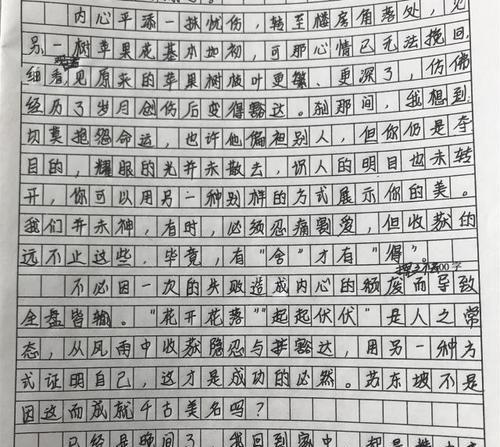 内心平添一抹忧伤，转至楼房角落处，见
另一树苹果花基本地初，可那心情已无法挽回，
细看见原来的苹果树枝叶更繁、更深了，仿佛
经历了岁月创伤后变得豁达。刹那间，我想到：
切莫抱怨命运，也许他偏袒别人，但你仍是夺
目的，耀眼的光并未散去，识人的明目也未转
开，你可以用另一种别样的方式展示你的美。
我们并未神，有时，必须忍痛割爱，但收获的
远不止这些，毕竟，有“舍”才有“得”。
00字
不必因一次的失败造成内心的颓废而导致
全盘皆输。“花开花落”“起起伏伏”是人之常
态，从风雨中收获隐忍与豁达，用另一种方
式证明自己，这才是成功的必然。苏东坡不是
因这而成就千古美名吗？
已经是晚间了，我回到家中